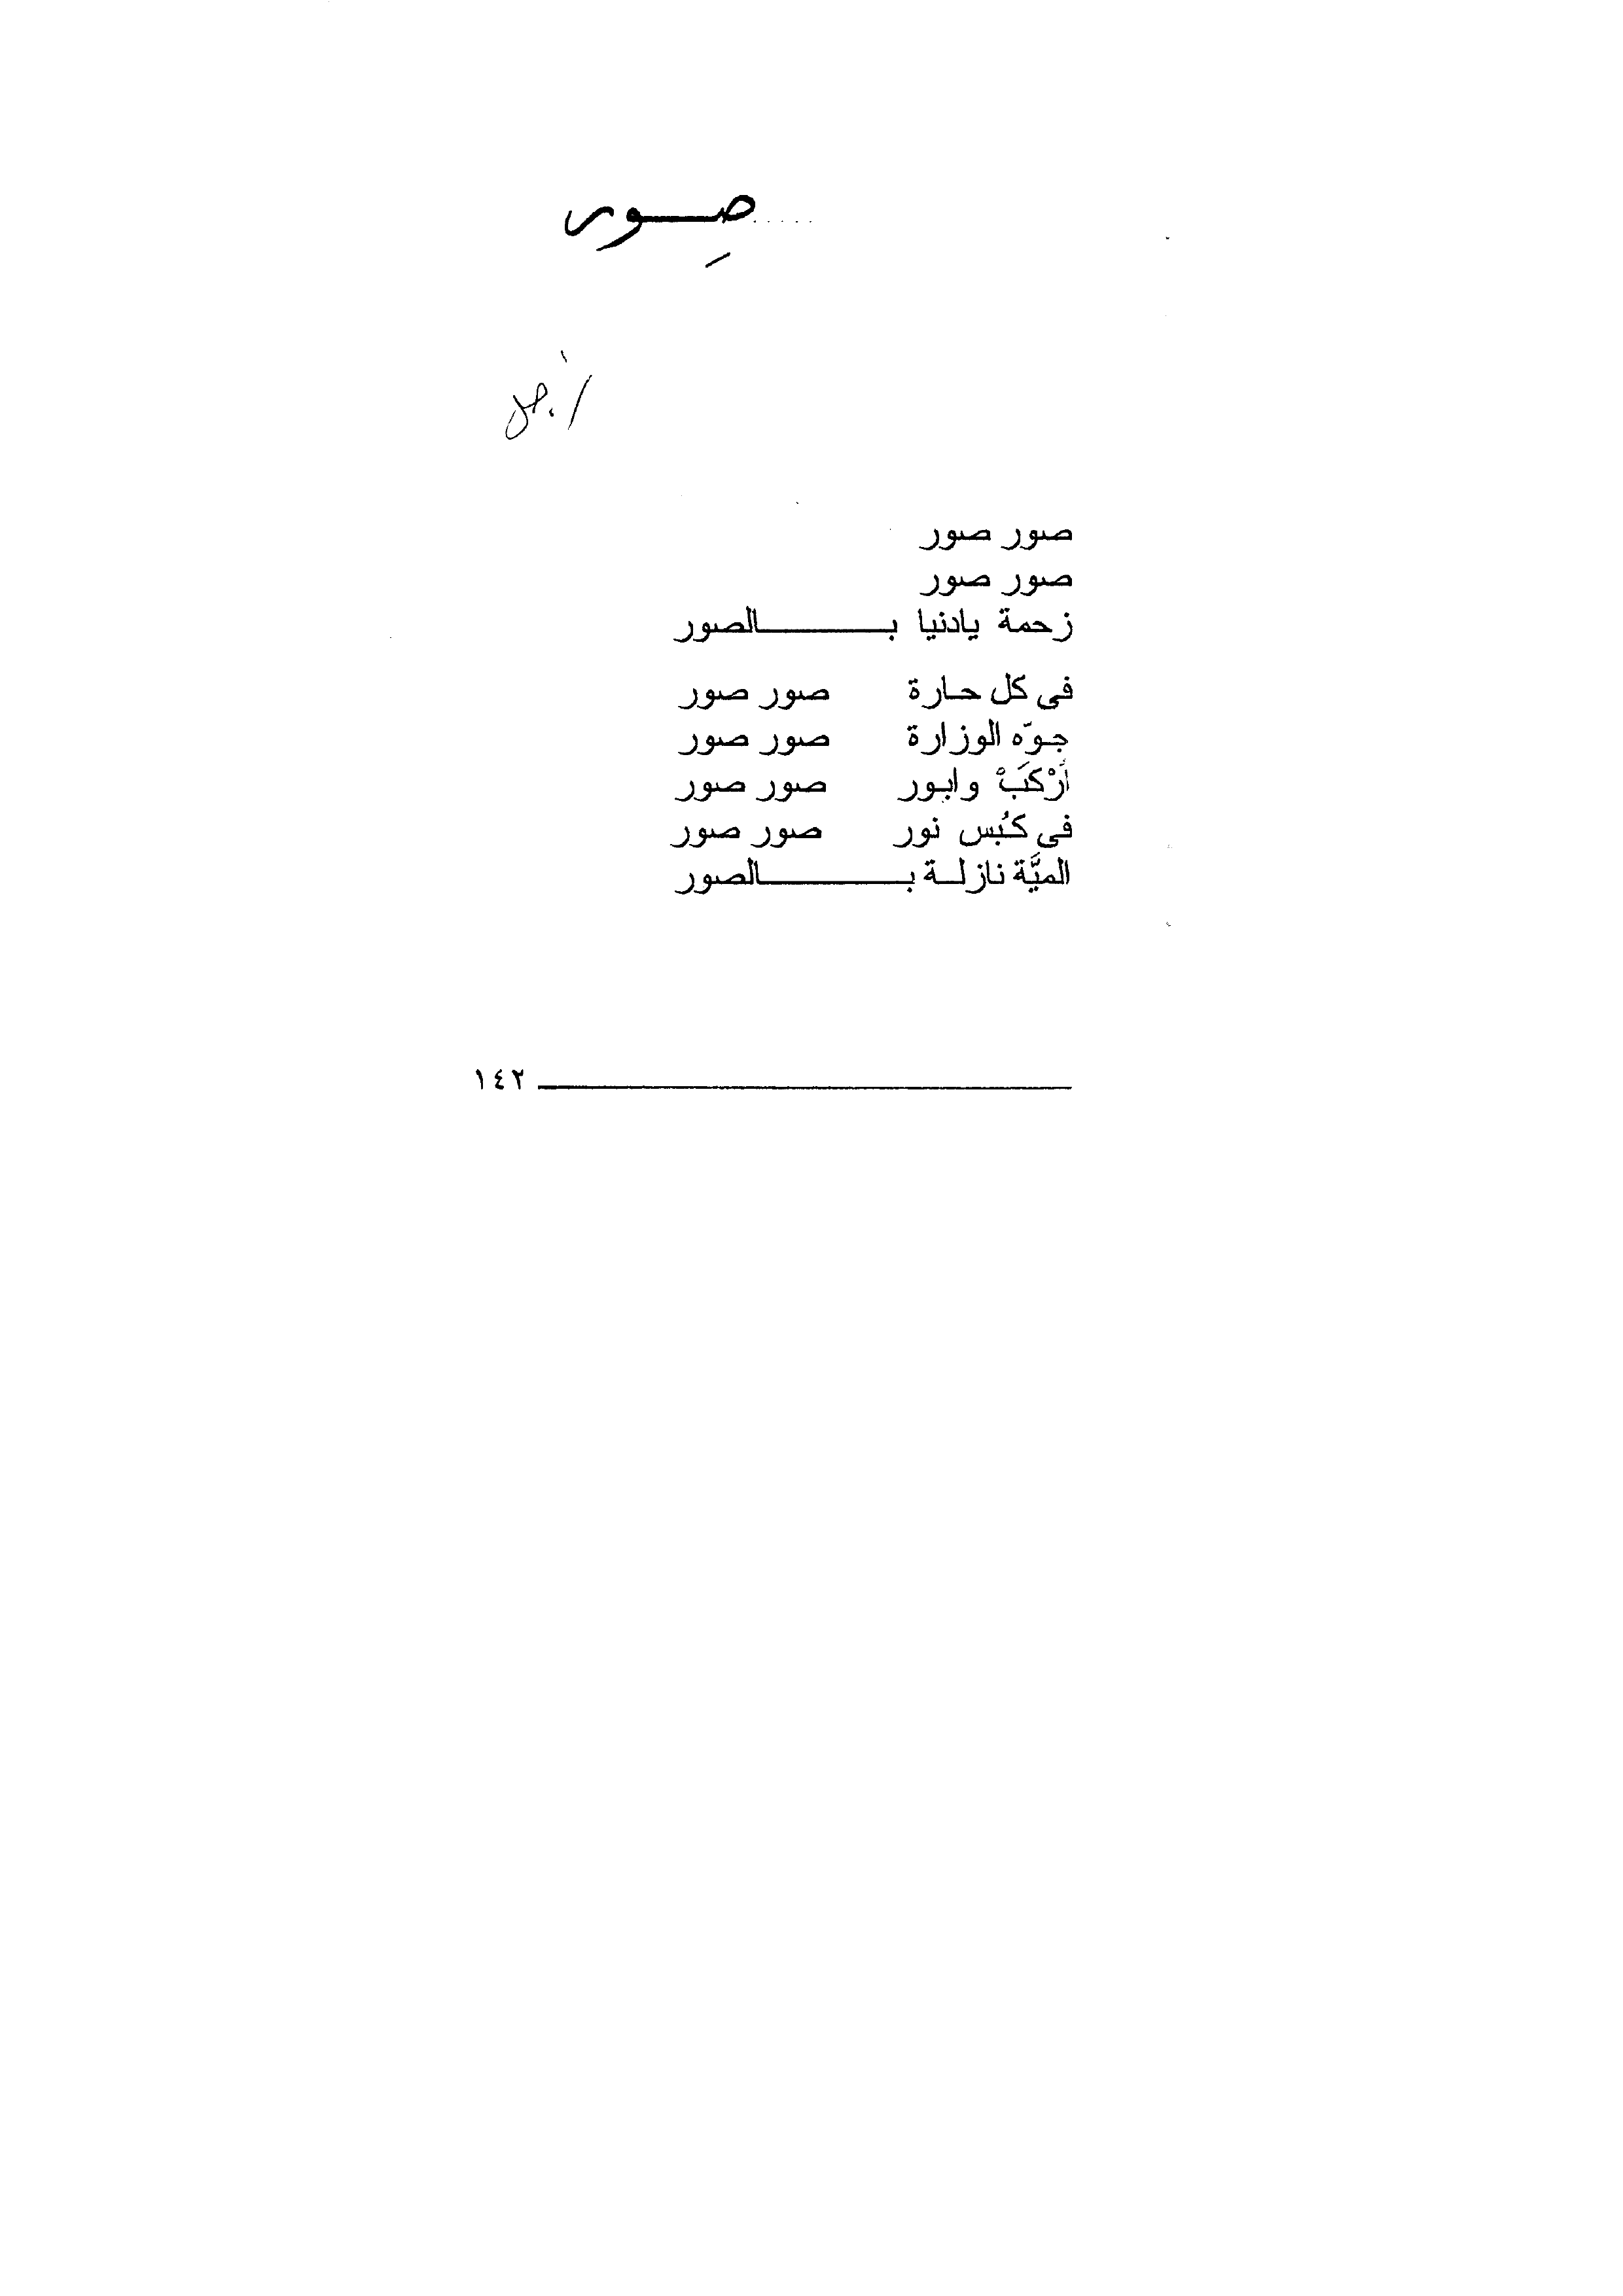 صِور
صور صور
صور صور
زحمة يادنيا بـــــــالصور
فى كل حارة صور صور
جوّه الوزارة صور صور
أَرْكَبْ وابور صور صور
فى كُبس نور صور صور
الميَّة نازلة بـــــــالصور
١٤٢